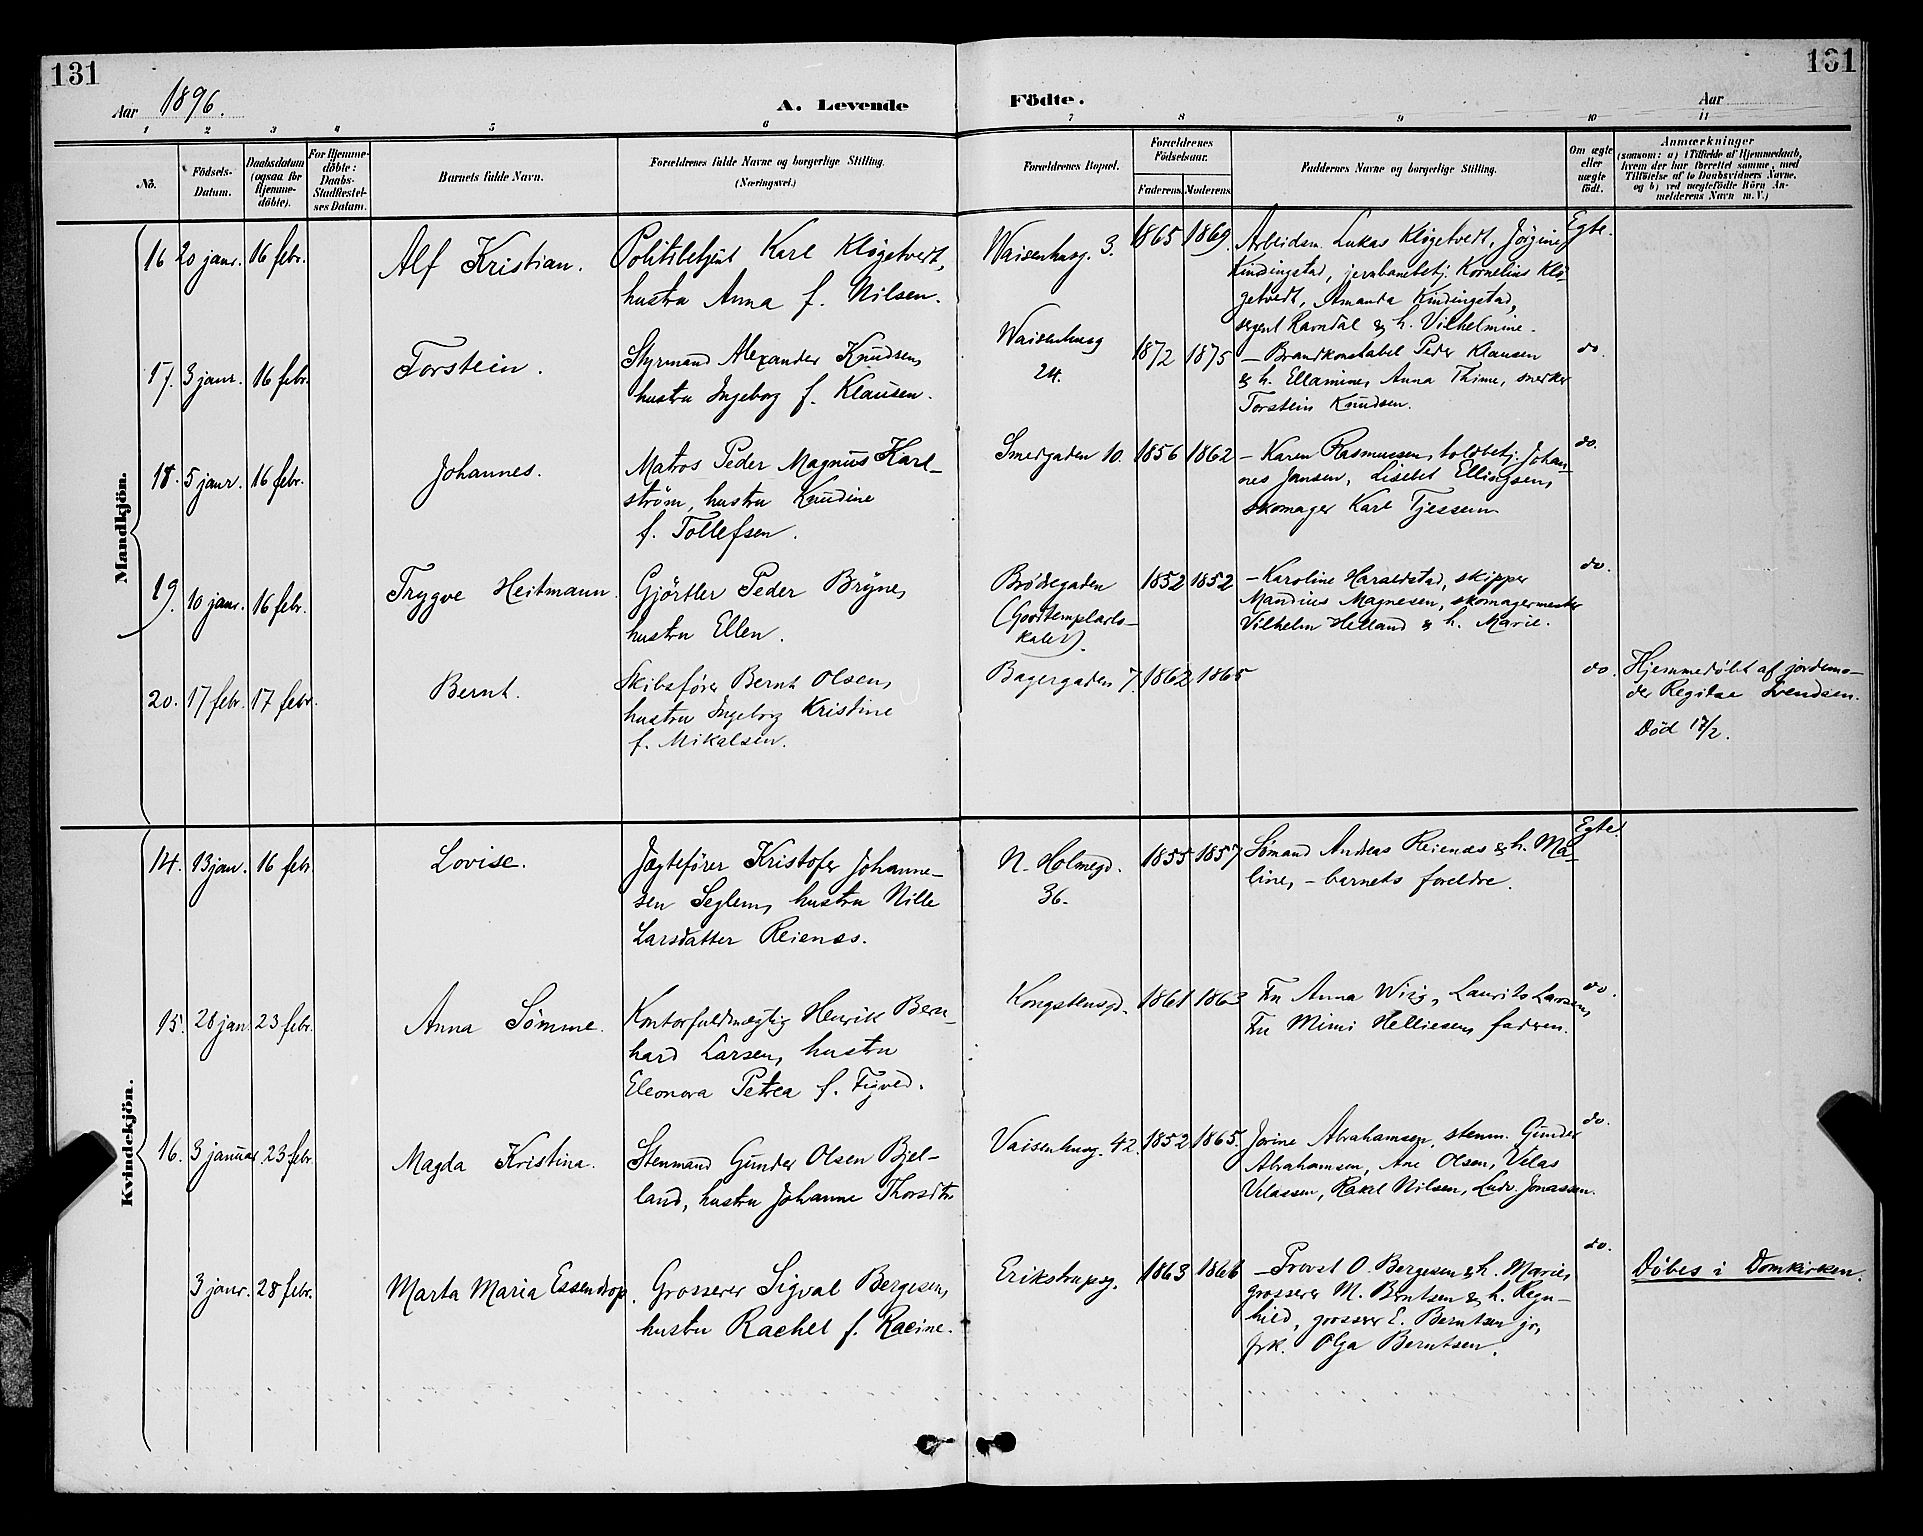 131
131
Aar 1896.
A. Levende Födte.
Aar
1 2 3 4 5 6 7 8 9 10 11
No.
Födsels-
Datum.
Daabsdatum
(ogsaa for
Hjemme-
döbte).
For Hjemme-
döbte:
Daabs-
Stadfæstel-
ses Datum.
Barnets fulde Navn.
Forældrenes fulde Navne og borgerlige Stilling.
(Næringsvei.)
Forældrenes Bopæl.
Forældrenes
Födselsaar.
Faderens. Moderens.
Faddernes Navne og borgerlige Stilling.
Om ægte
eller
uægte
födt.
Anmærkninger
(saasom: a) i Tilfælde af Hjemmedaab,
hvem der har forrettet samme, med
Tilföielse af to Daabsvidners Navne,
og b) ved uægtefödte Börn An-
melderens Navn m. V.)
Mandkjön.
16 20 janr. 16 febr.
Alf Kristian.
Politibetjent Karl Kløgetvedt,
hustru Anna f. Nilsen.
Waisenhusg. 3.
1865 1869.
Arbeidsm. Lukas Kløgetvedt, Jörgine
Kindingstad, jernbanebetj. Kornelius Klø-
getvedt, Amanda Kindingstad,
sergent Ravndal & h. Vilhelmine.
Egte.
17. 3 janr. 16 febr.
Torstein.
Styrmand Alexander Knudsen,
hustru Ingeborg f. Klausen.
Waisenhusg
24.
1872 1875
— Brandkonstabel Peder Klausen
& h. Ellamine, Anna Thime, snekker
Torstein Knudsen.
do.
18. 5 janr. 16 febr.
Johannes.
Matros Peder Magnus Karl-
ström, hustru Knudine
f. Tollefsen.
Smedgaden 10.
1856 1862
— Karen Rasmussen, toldbetj. Johan-
nes Jansen, Lisebet Ellingsen,
skomager Karl Tjessem
do.
19. 10 janr. 16 febr.
Trygve Heitmann.
Gjörtler Peder Bryne,
hustru Ellen.
Brødregaden
(Goodtemplarlo-
kalet).
1852 1852
— Karoline Haraldstad, skipper
Mandius Magnesen, skomagermester
Vilhelm Helland & h. Marie.
do.
20. 17 febr. 17 febr.
Bernt.
Skibsfører Bernt Olsen,
hustru Ingeborg Kristine
f. Mikalsen.
Bagergaden 7.
1862 1865
do.
Hjemmedøbt af jordemo-
der Regitze Svendsen.
Død 17/2.
Kvindekjön.
14. 13 jan. 16 febr
Lovise.
Jægtefører Kristofer Johanne-
sen Seglem, hustru Nille
Larsdatter Reienes.
N. Holmegd.
36.
1855 1857
Sömand Andreas Reienes & h. Ma-
line, – barnets foreldre.
Egte
15. 28 jan 23 febr.
Anna Sömme.
Kontorfuldmægtig Henrik Bern-
hard Larsen, hustru
Eleonora Petrea f. Tjgved.
Kongstensgd.
1861 1863
Fru Anna Wiig, Laurits Larsen,
Fru Mimi Helliesen, faderen.
do.
16. 3 januar 23 febr
Magda Kristina.
Stenmand Gunder Olsen Bjel-
land, hustru Johanne Thorsdtr
Vaisenhusg. 42.
1852 1865.
Jorine Abrahamsen, stenm. Gunder
Abrahamsen, Ane Olsen, Velas
Velassen, Rakel Nilsen, Ludv. Jonassen.
do.
3 janr. 28 febr.
Marta Maria Essendrop.
Grosserer Sigval Bergesen,
hustru Rachel f. Racine.
Erikstrupsg.
1863 1866
— Provst O. Bergesen & h. Marie,
grosserer M. Berntsen & h. Regn-
hild, grosser E. Berntsen jr,
frk. Olga Berntsen.
do.
Döbes i Domkirken.